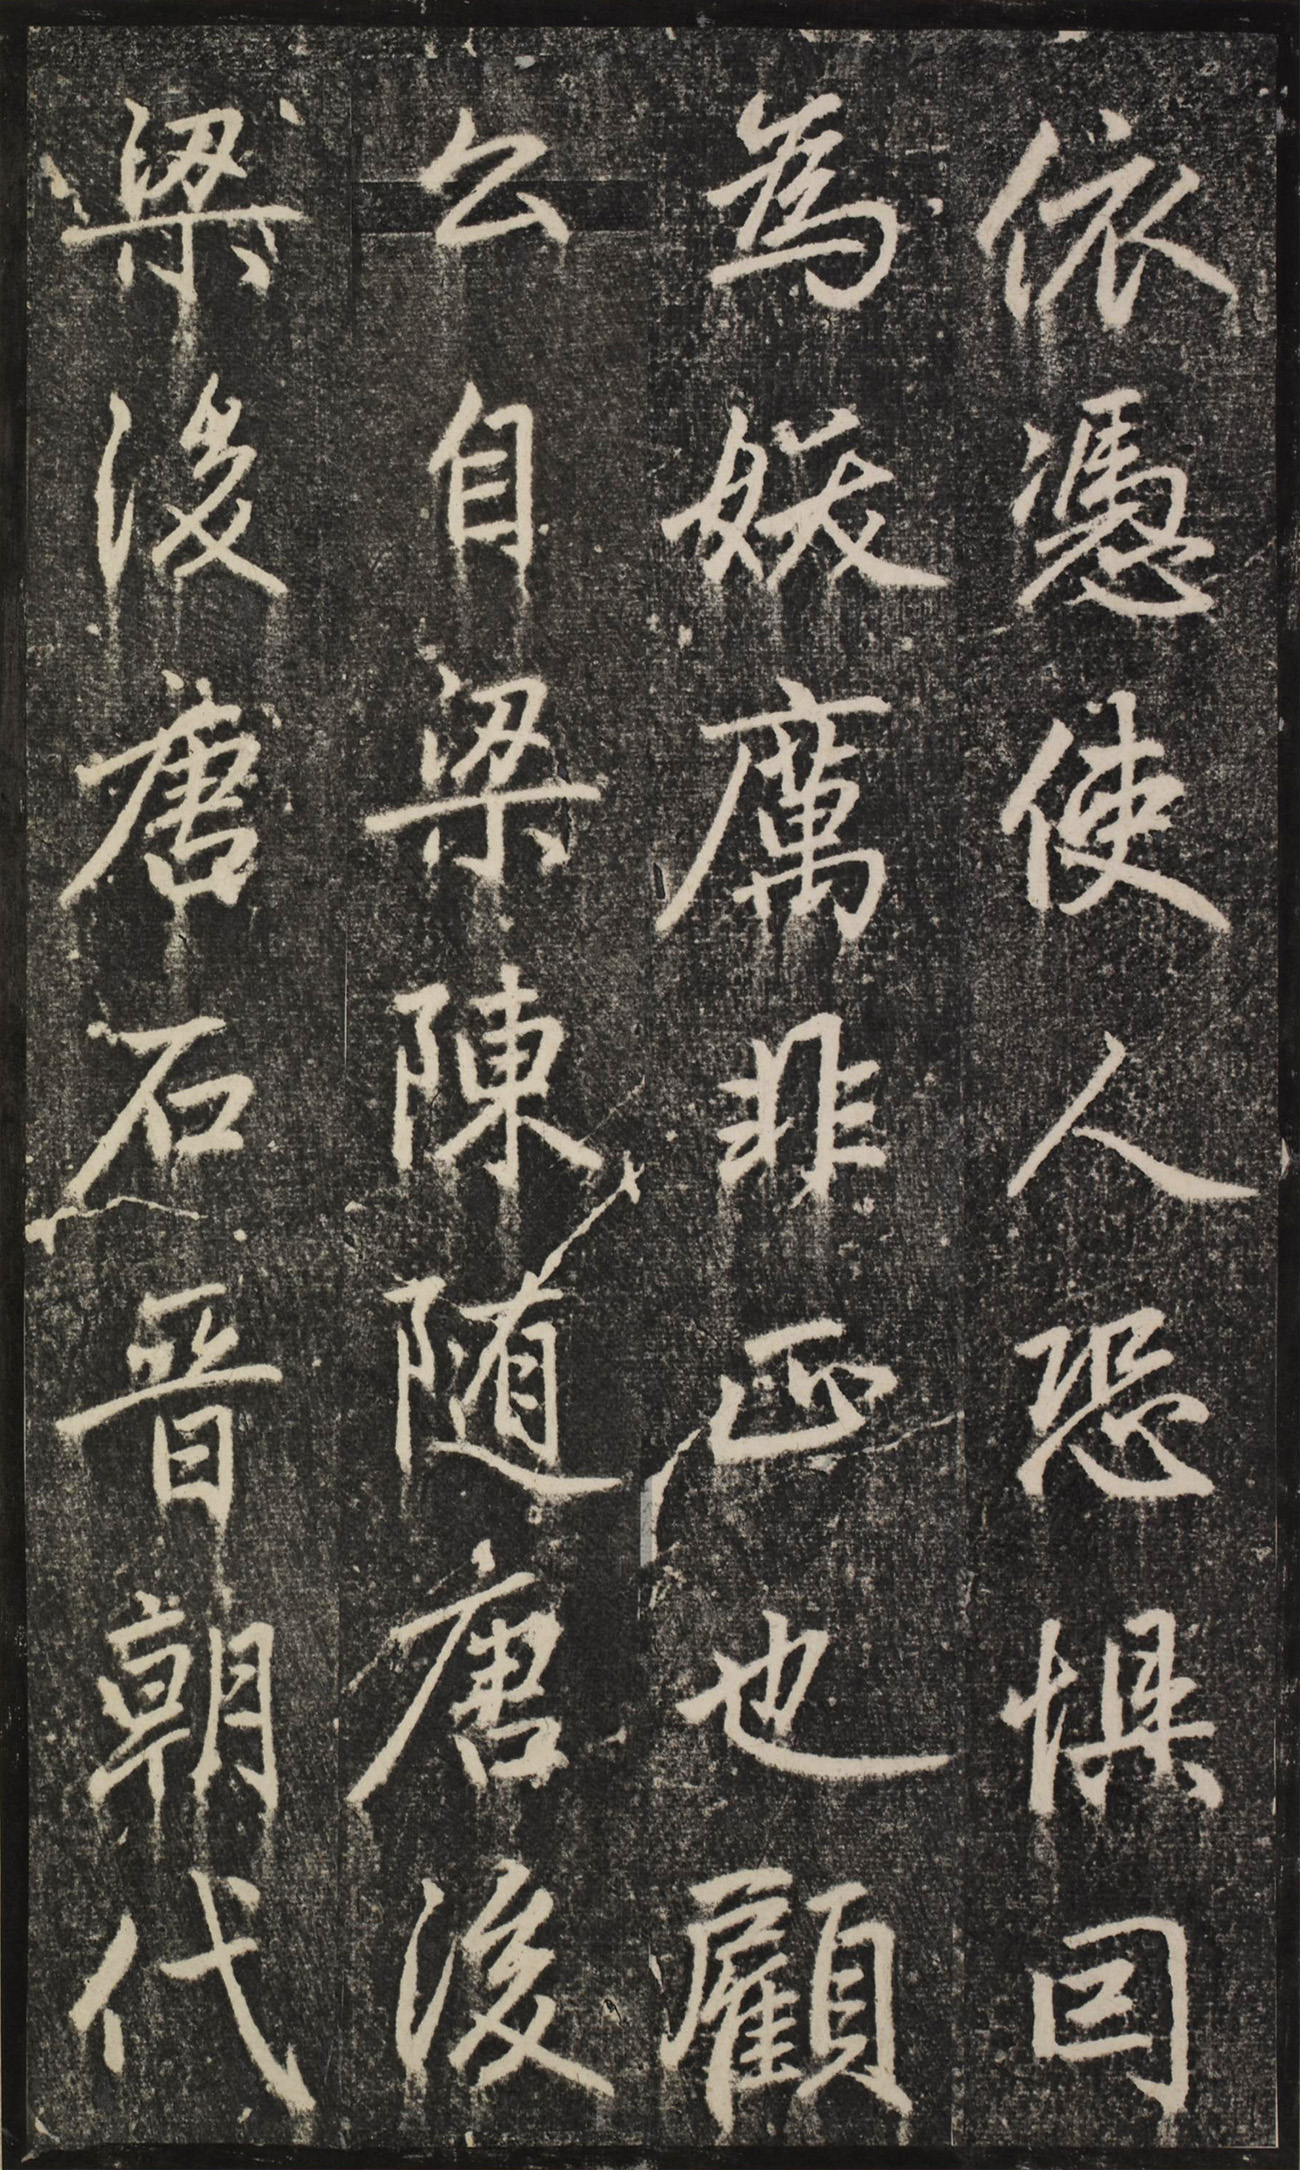 依憑使人恐惧同
為妖厲非正也顧
公自梁陳随唐後
梁後唐石晉朝代